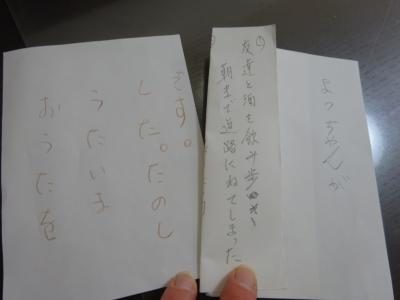 よっちゃんが
① 友達と酒を飲み歩き、
朝まで道路にねてしまった
おうたを
うたいま
した。たのし
きす。